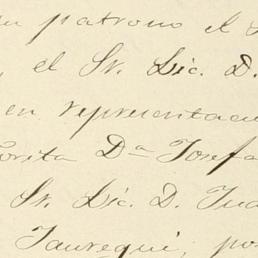 su patrono el S
, el Sr. Lic. D.
en representació
orita Dª Josefa
Sr. Lic. D. Jua
Jauregui, po